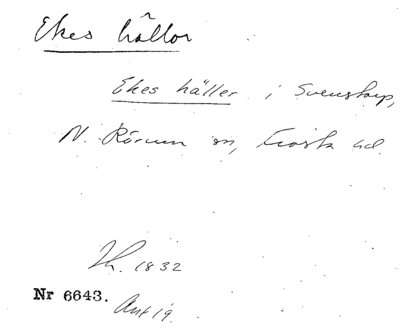 Ekes hällor
Ekes häller i Svenstorp,
N. Rörum sn, Frosta hd.
Th. 1832
Nr 6643.
Ant 19.